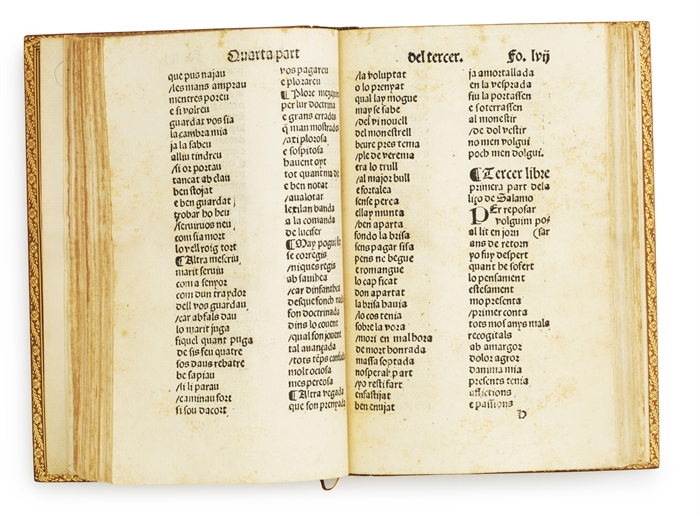 Quarta part
que pus najau
/les mans amprau
mentres poreu
e si volreu
guardat vos sia
la cambra mia
ja la sabeu
alliu tindreu
/si or portau
tancat ab clau
ben stojat
e ben guardat
trobar ho heu
/seruiruos neu
com sia mort
lo vell roig tort
¶Altra mescriu
marit seruiu
com a senyor
com dun traydor
dell vos guardau
/car ab fals dau
lo marit juga
siquel quant puga
de sis feu quatre
sos daus rebatre
be sapiau
/si li parau
/caminau fort
si sou dacort
vos pagareu
e plorareu
¶Plore
per lur doctrina
e grans errades
q̃ man mostrades
/a ti plorosa
e sospitosa
hauent oyt
tot quant
e ben notat
/aualotat
lestilan banda
a la comanda
de lucifer
¶May pogui fer
se corregis
/niques regis
ab sauihea
/car dinfanthea
desque fonch nada
fon doctrinada
dins lo couent
/qual son jouent
tal auançada
/tots tẽps
molt ociosa
mes percosa
¶Altra vegada
que son prenyada
del tercer. Fo. lvij
/la voluptat
o lo prenyat
qual lay mogue
may se sabe
/del vi nouell
del monestrell
beure pres tema
ple de verema
era lo trull
/al major bull
e fortalea
sense perea
ella y munta
/ben aparta
fondo la brisa
sens pagar sisa
pens ne begue
e romangue
lo cap ficat
don apartat
la brisa hauia
/lo cos tenia
sobre la vora
/mori en mal hora
de mort honrada
massa soptada
nosperal part
/yo restifart
enfastijat
ben enujat
ja amortallada
en la vesprada
fiu la portassen
e soterrassen
al monestir
/de dol vestir
no men volgui
poch men dolgui.
¶Tercer libre
primera part dela
liço de Salamo
PEr reposar
volguim po/
al lit en jorn (sar
ans de retorn
yo fuy despert
quant he sofert
lo pensament
estesament
mo presenta
/primer conta
tots mos anys mals
recogitals
ab amargor
dolor agror
damma mia
presents tenia
afflictions
e passions
v